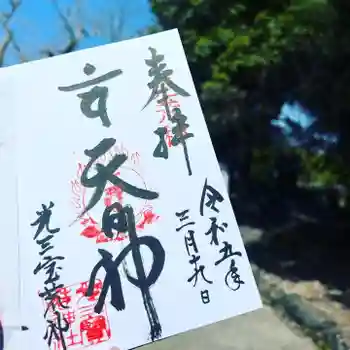 奉拝
天日神
令和五年
三月十九日
光三宝荒神